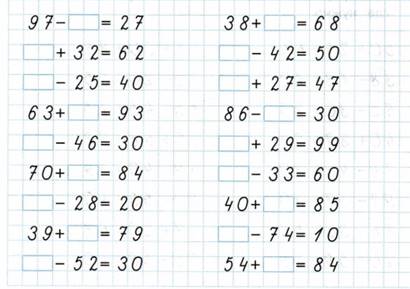 97-□=27
□+32=62
□-25=40
63+□=93
□-46=30
70+□=84
□-28=20
39+□=79
□-52=30
38+□=68
□-42=50
□+27=47
86-□=30
□+29=99
□-33=60
40+□=85
□-74=10
54+□=84